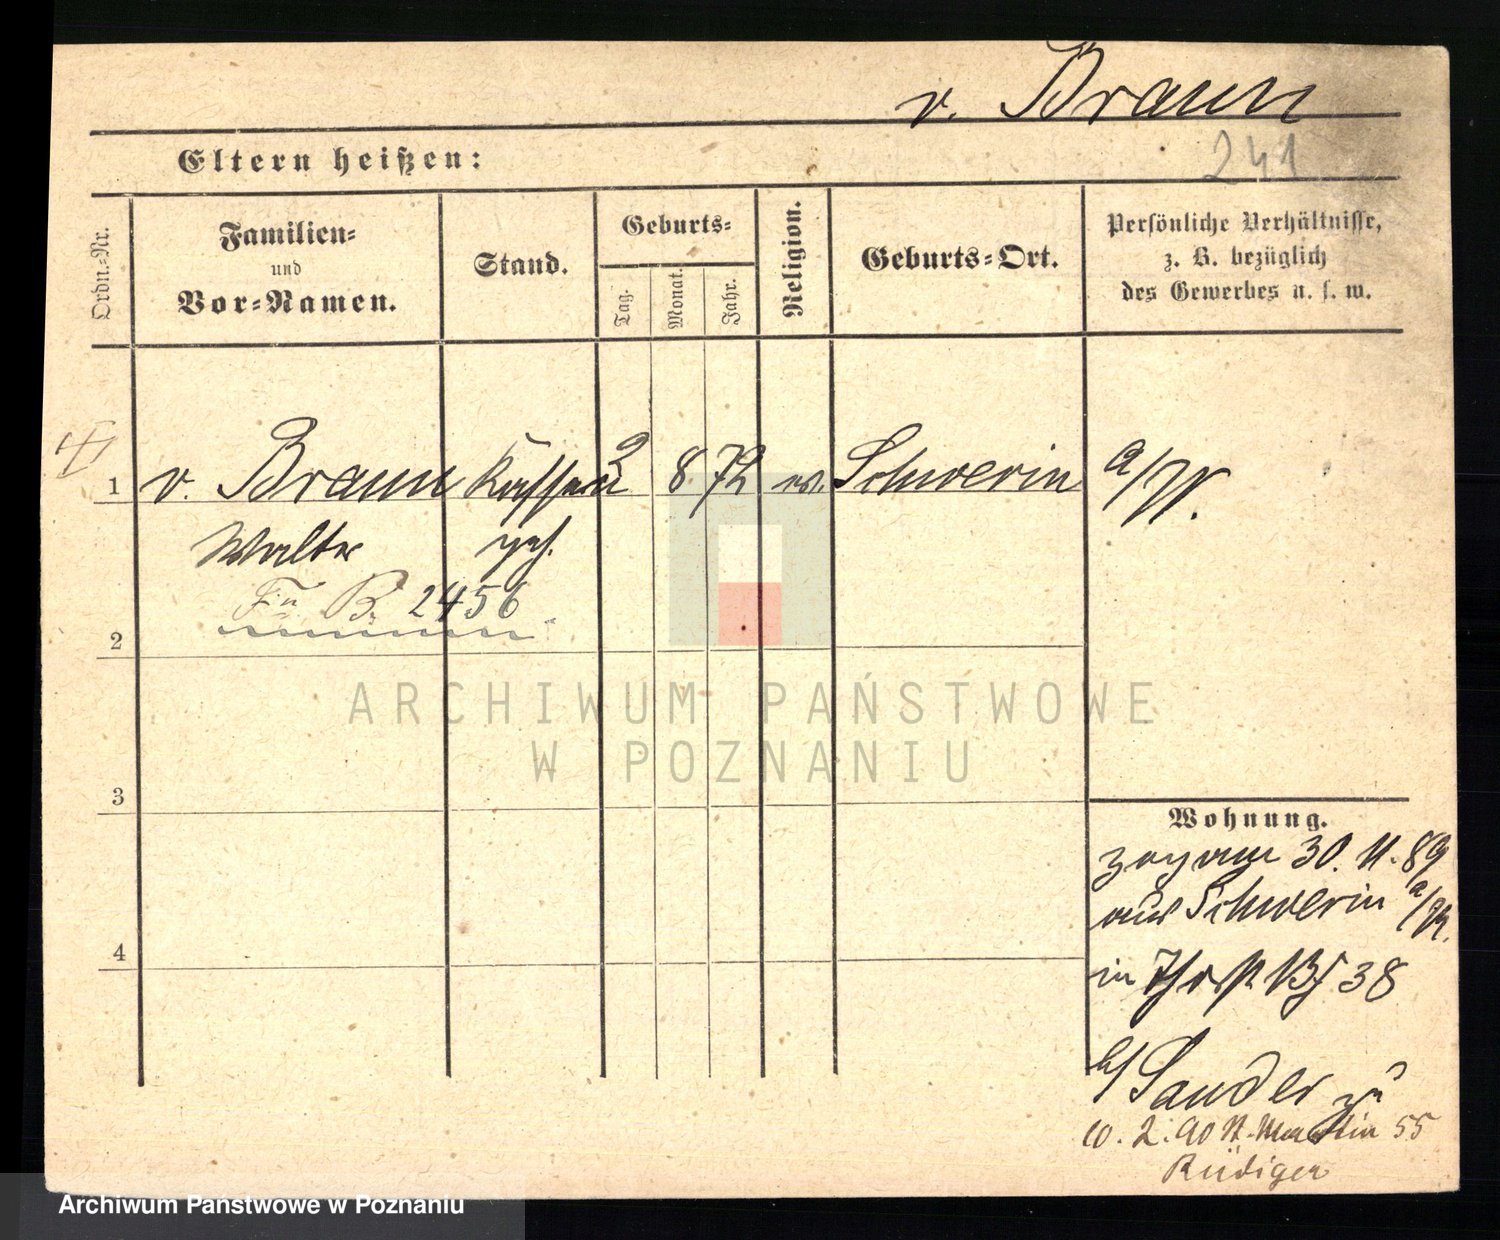 v. Braun
241
Eltern heißen:
Ordn.-Nr.
Familien-
und
Vor-Namen.
Stand.
Geburts-
Tag.
Monat.
Jahr.
Religion.
Geburts-Ort.
Persönliche Verhältnisse,
z. B. bezüglich
des Gewerbes u. s. w.
1 v. Braun 2 8 72 ev. Schwerin a/W.
Walter
B. 2456
2
3
4
Wohnung.
zog am 30. 11. 89
aus Schwerin a/W.
in 38
b/ Sander zu
10. 2. 90 St. Martin 55
Rüdiger
ARCHIWUM PAŃSTWOWE
W POZNANIU
Archiwum Państwowe w Poznaniu